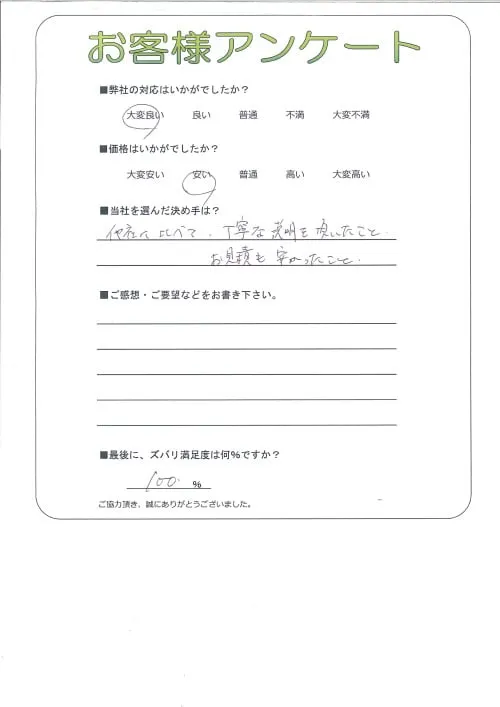 お客様アンケート
■弊社の対応はいかがでしたか？
大変良い 良い 普通 不満 大変不満
■価格はいかがでしたか？
大変安い 安い 普通 高い 大変高い
■当社を選んだ決め手は？
他社に比べて、丁寧な説明を頂いたこと.
お見積も安かったこと.
■ご感想・ご要望などをお書き下さい。
■最後に、ズバリ満足度は何%ですか？
100 %
ご協力頂き、誠にありがとうございました。